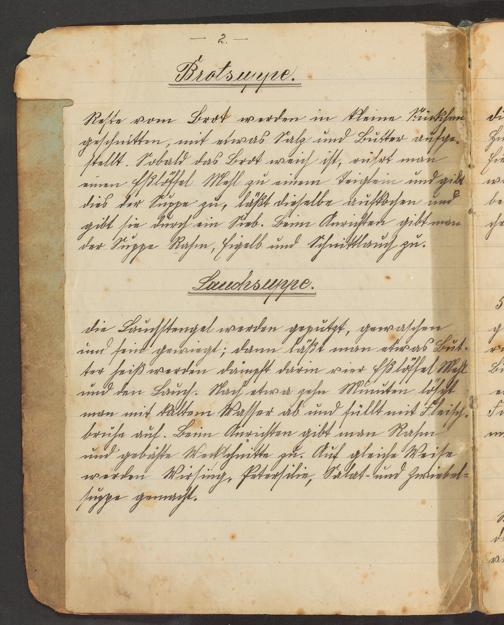 — 2. —
Brotsuppe.
Reste vom Brot werden in kleine Stückchen
geschnitten, mit etwas Salz und Butter aufge-
stellt. Sobald das Brot weich ist, rührt man
einen Eßlöffel Mehl zu einem Teiglein und gibt
dies der Suppe zu, läßt dieselbe aufkochen und
gibt sie durch ein Sieb. Beim Anrichten gibt man
der Suppe Rahm, Eigelb und Schnittlauch zu.
Lauchsuppe.
Die Lauchstengel werden geputzt, gewaschen
und fein gewiegt; dann läßt man etwas But-
ter heiß werden dämpft darin vier Eßlöffel Mehl
und den Lauch. Nach etwa zehn Minuten löscht
man mit kaltem Wasser ab und füllt mit Fleisch-
brühe auf. Beim Anrichten gibt man Rahm
und gebähte Weckschnitte zu. Auf gleiche Weise
werden Wirsing, Petersilie, Salat- und Zwiebel-
suppe gemacht.